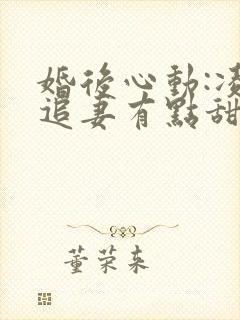 婚後心動:凌
追妻有點甜
董荣来